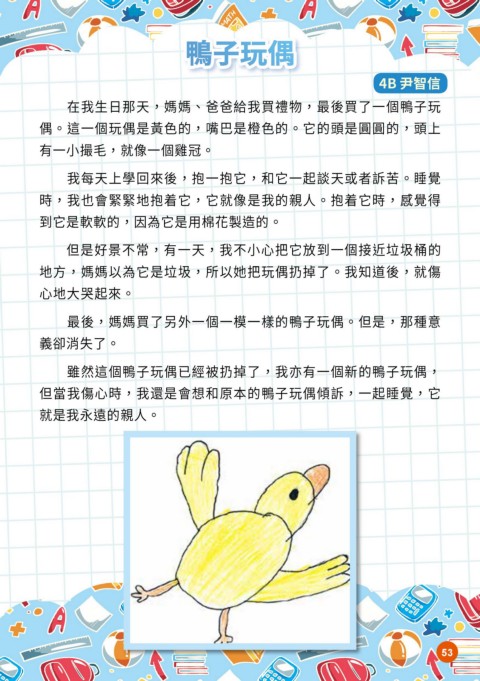 鴨子玩偶
4B 尹智信
在我生日那天，媽媽、爸爸給我買禮物，最後買了一個鴨子玩
偶。這一個玩偶是黃色的，嘴巴是橙色的。它的頭是圓圓的，頭上
有一小撮毛，就像一個雞冠。
我每天上學回來後，抱一抱它，和它一起談天或者訴苦。睡覺
時，我也會緊緊地抱着它，它就像是我的親人。抱着它時，感覺得
到它是軟軟的，因為它是用棉花製造的。
但是好景不常，有一天，我不小心把它放到一個接近垃圾桶的
地方，媽媽以為它是垃圾，所以她把玩偶扔掉了。我知道後，就傷
心地大哭起來。
最後，媽媽買了另外一個一模一樣的鴨子玩偶。但是，那種意
義卻消失了。
雖然這個鴨子玩偶已經被扔掉了，我亦有一個新的鴨子玩偶，
但當我傷心時，我還是會想和原本的鴨子玩偶傾訴，一起睡覺，它
就是我永遠的親人。
53